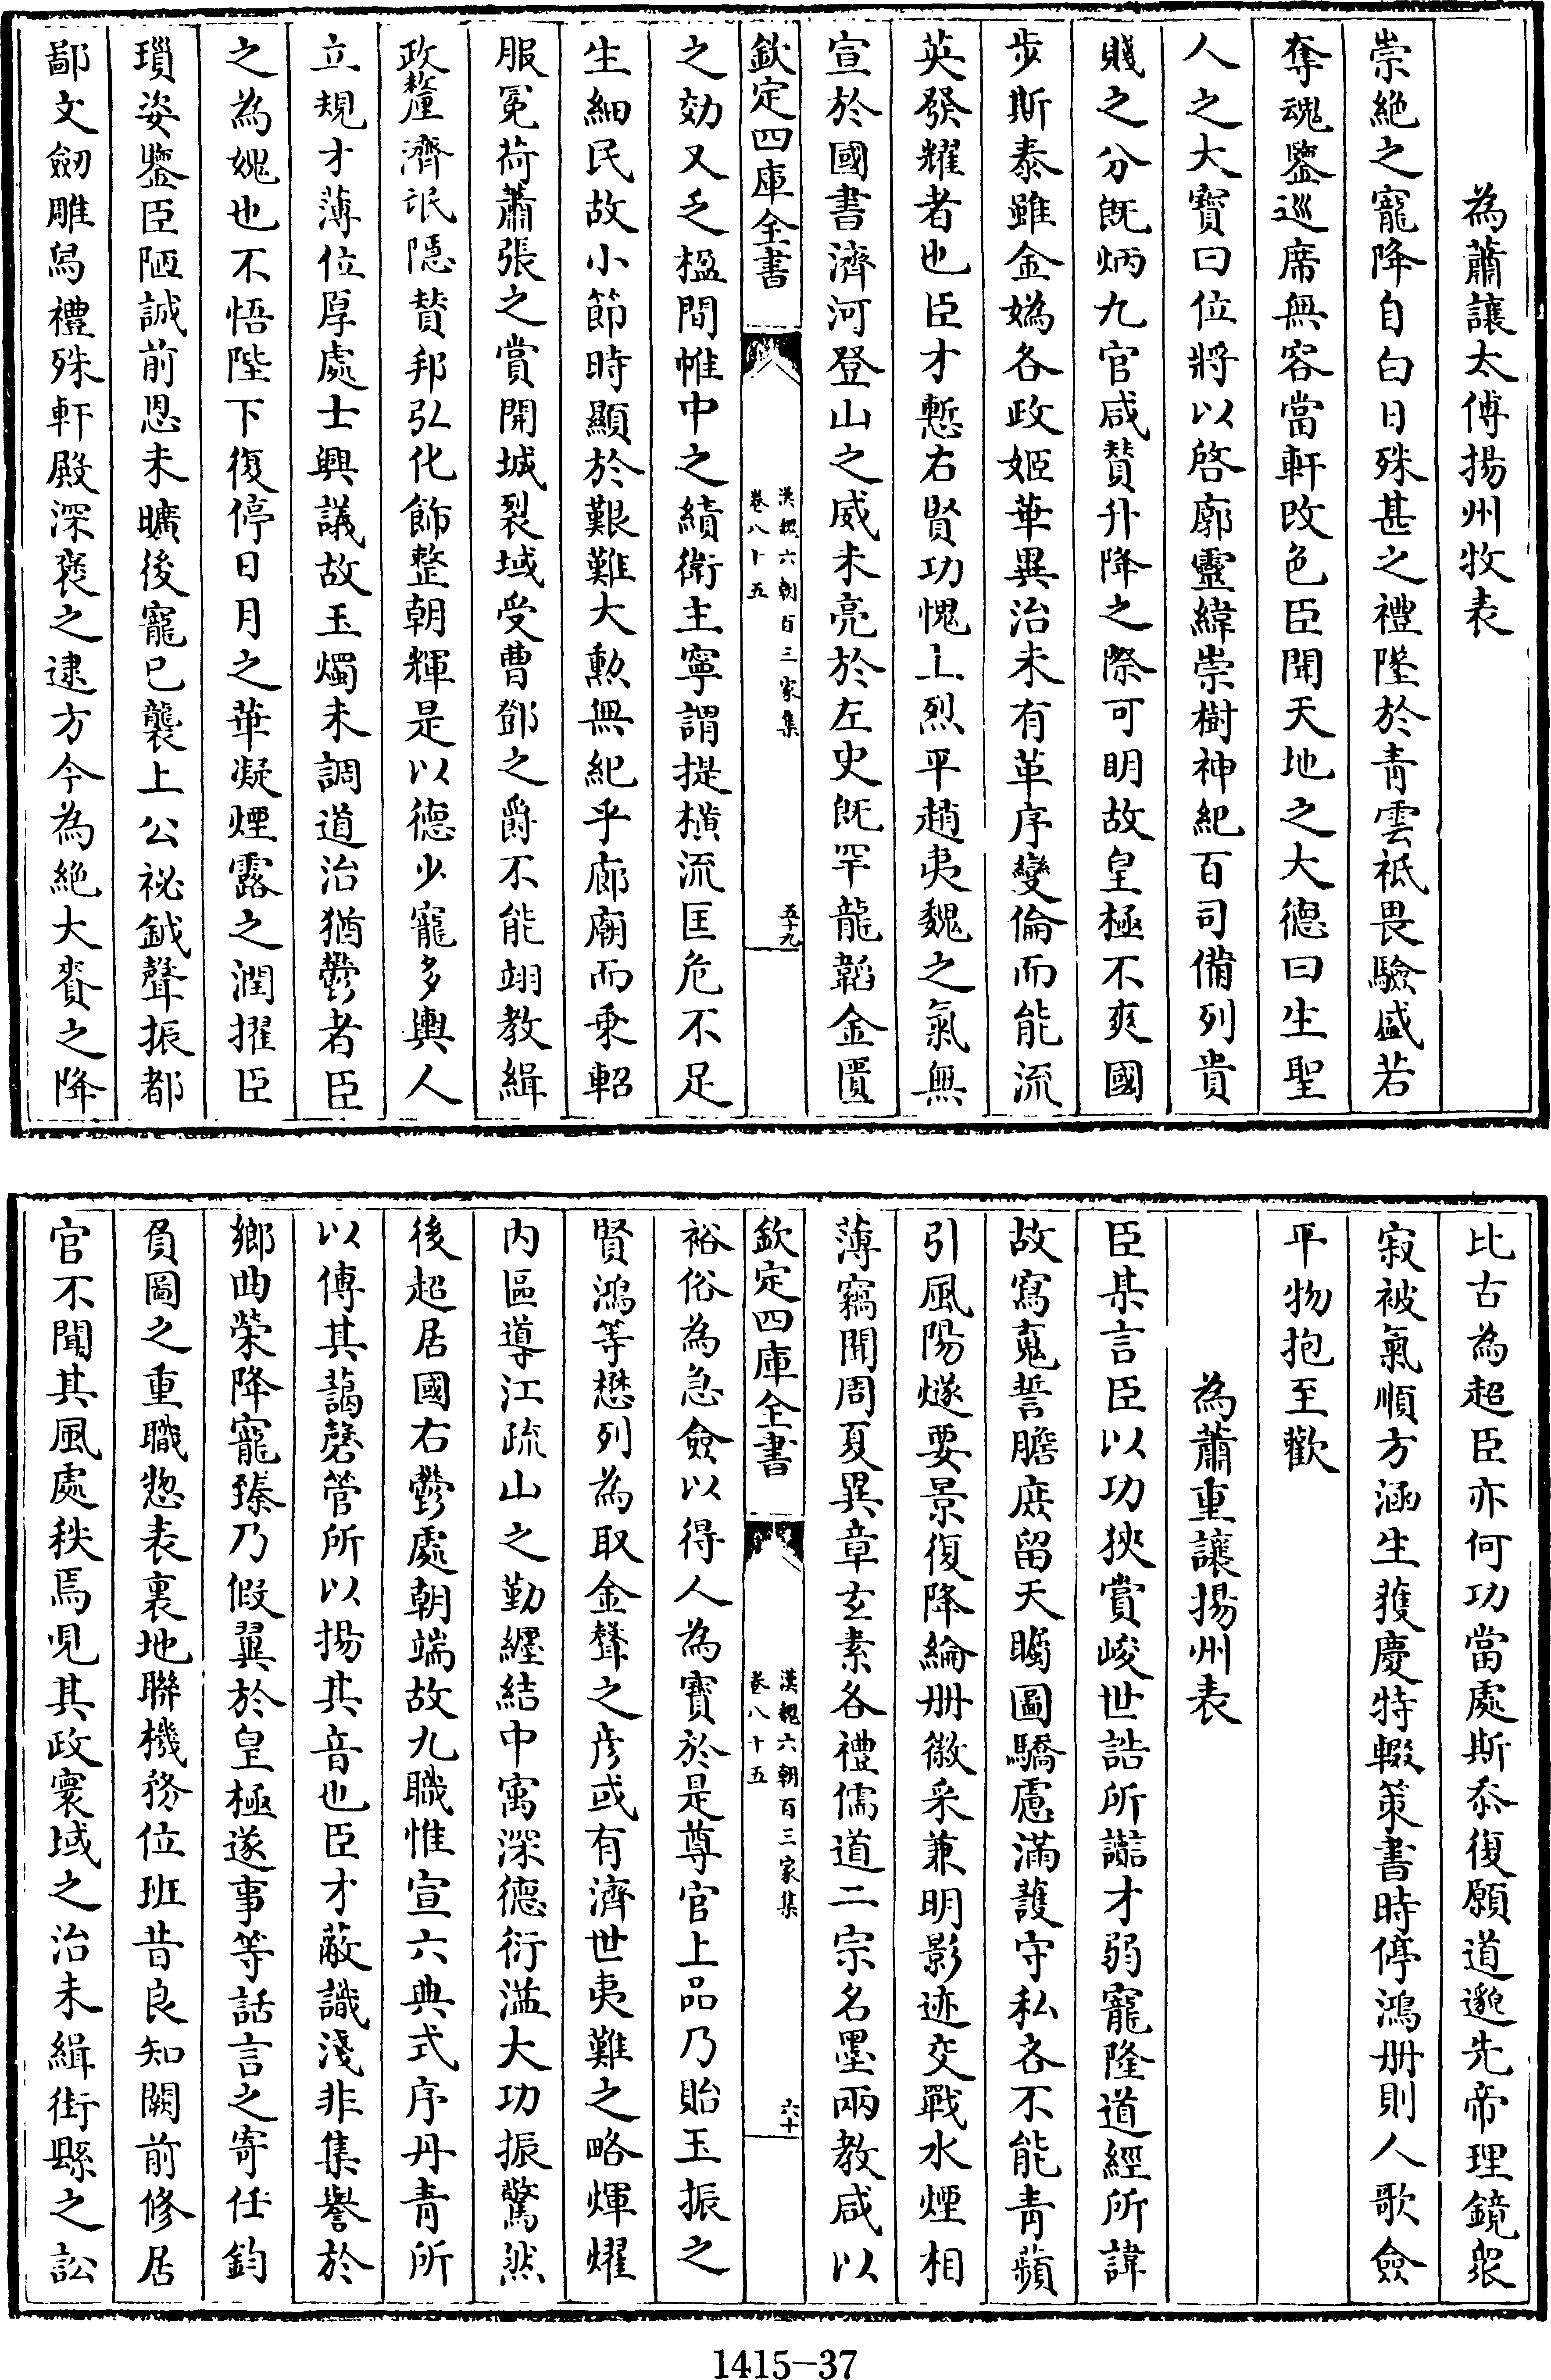 為蕭讓太傅揚州牧表
崇絶之寵降自白日殊甚之禮墜於青雲祗畏驗盛若
奪魂鑒巡席無容當軒改色臣聞天地之大德曰生聖
人之大寳曰位將以啓廓靈緯崇樹神紀百司備列貴
賤之分既炳九官咸賛升降之際可明故皇極不爽國
步斯泰雖金媯各政姬華異治未有革序變倫而能流
英發耀者也臣才慙右賢功愧上烈平趙夷魏之氣無
宣於國書濟河登山之威未亮於左史既罕龍韜金匱
欽定四庫全書
漢魏六朝百三家集
卷八十五
五十九
之効又乏楹間帷中之績衛主寧謂提横流匡危不足
生細民故小節時顯於艱難大勲無紀乎廊廟而乗軺
服冕荷蕭張之賞開城裂域受曹鄧之爵不能翊教緝
政釐濟氓隱賛邦弘化飾整朝輝是以德少寵多輿人
立規才薄位厚處士興議故玉燭未調道治猶鬱者臣
之為媿也不悟陛下復停日月之華凝煙露之潤擢臣
瑣姿鑒臣陋誠前恩未曠後寵已襲上公祕鉞聲振都
鄙文劒雕舄禮殊軒殿深褒之逮方今為絶大賚之降
比古為超臣亦何功當處斯忝復願道邈先帝理鏡衆
寂被氣順方涵生獲慶特輟策書時停鴻册則人歌僉
平物抱至歡
為蕭重讓揚州表
臣某言臣以功狹賞峻世誥所譏才弱寵隆道經所諱
故寫寃誓膽庶留天矚圖驕慮滿䕶守私吝不能青蘋
引風陽燧要景復降綸册徽采兼明影迹交戰水煙相
薄竊聞周夏異章玄素各禮儒道二宗名墨兩教咸以
欽定四庫全書
漢魏六朝百三家集
卷八十五
六十
裕俗為急僉以得人為寳於是尊官上品乃貽玉振之
賢鴻等懋列為取金聲之彦或有濟世夷難之略煇燿
内區導江疏山之勤纒結中㝢深德衍溢大功振驚然
後超居國右鬱處朝端故九職惟宣六典式序丹青所
以傳其藹磬管所以揚其音也臣才蔽識淺非集譽於
鄉曲榮降寵臻乃假翼於皇極遂事等話言之寄任鈞
負圖之重職惣表裏地聨機務位班昔良知闕前修居
官不聞其風處秩焉覌其政寰域之治未緝街縣之訟
1415-37